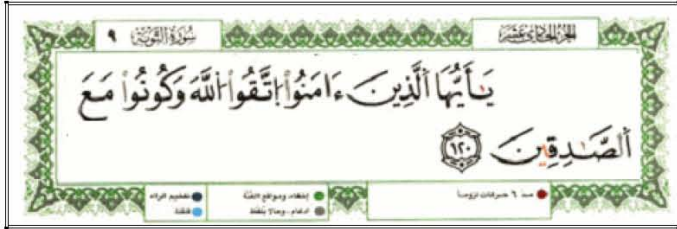 الجزء الحادي عشر
سورة التوبة ٩
يَٰٓأَيُّهَا ٱلَّذِينَ ءَامَنُوا۟ ٱتَّقُوا۟ ٱللَّهَ وَكُونُوا۟ مَعَ
ٱلصَّٰدِقِينَ ١٢٠
مدّ ٦ حركات لزوماً
إخفاء، ومواقع الغُنَّة
تفخيم الراء
ادغام، ومالا يُلفَظ
قلقلة